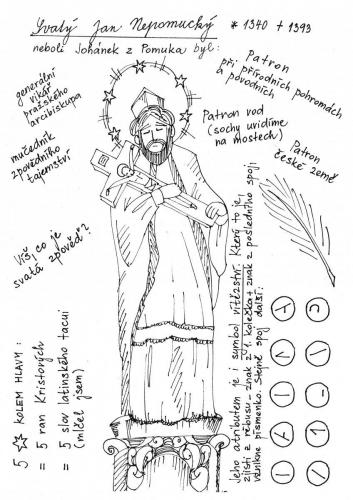 Svatý Jan Nepomucký * 1340 + 1393
neboli Johánek z Pomuka byl:
generální
vikář
pražského
arcibiskupa
mučedník
zpovědního
tajemství
Víš, co je
svatá zpověď?
5 ☆ KOLEM HLAVY:
= 5 ran Kristových
= 5 slov latinského tacui
(mlčel jsem)
Patron
při přírodních pohromách
a povodních
Patron vod
(sochy uvidíme
na mostech)
Patron
české země
Jeho atributem je i symbol vítězství. Který to je,
zjistí z rébusu – znak z 1. kolečka + znak z posledního spojí
vznikne písmenko. Stejně spoj další: